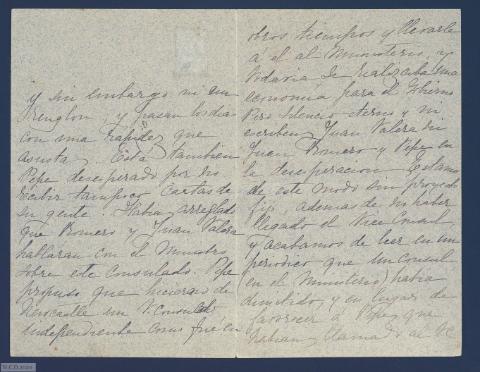 y sin embargo ni un
renglon y pasan los dias
con una rapidez que
asusta. Está tambien
Pepe desesperado por no
recibir tampoco cartas de
su gente. Habia arreglado
que Romero y Juan Valera
hablaran con el Ministro
sobre este Consulado. Pepe
propuso que hicieran de
Newcastle un V. Consulado
independiente como fue en
otros tiempos y llevarle
a el al Ministerio, y
todavia se realizaba una
economia para el Gobierno
Pero silencio eterno y ni
escriben Juan Valera ni
Juan Romero y Pepe en
la desesperacion. Estamos
de este modo sin proyecto
fijo, ademas de no haber
llegado el Vice Consul
y acabamos de leer en un
periodico que un Consul
en el Ministerio habia
dimitido, y en lugar de
favorecer á Pepe, que
habian llamado al